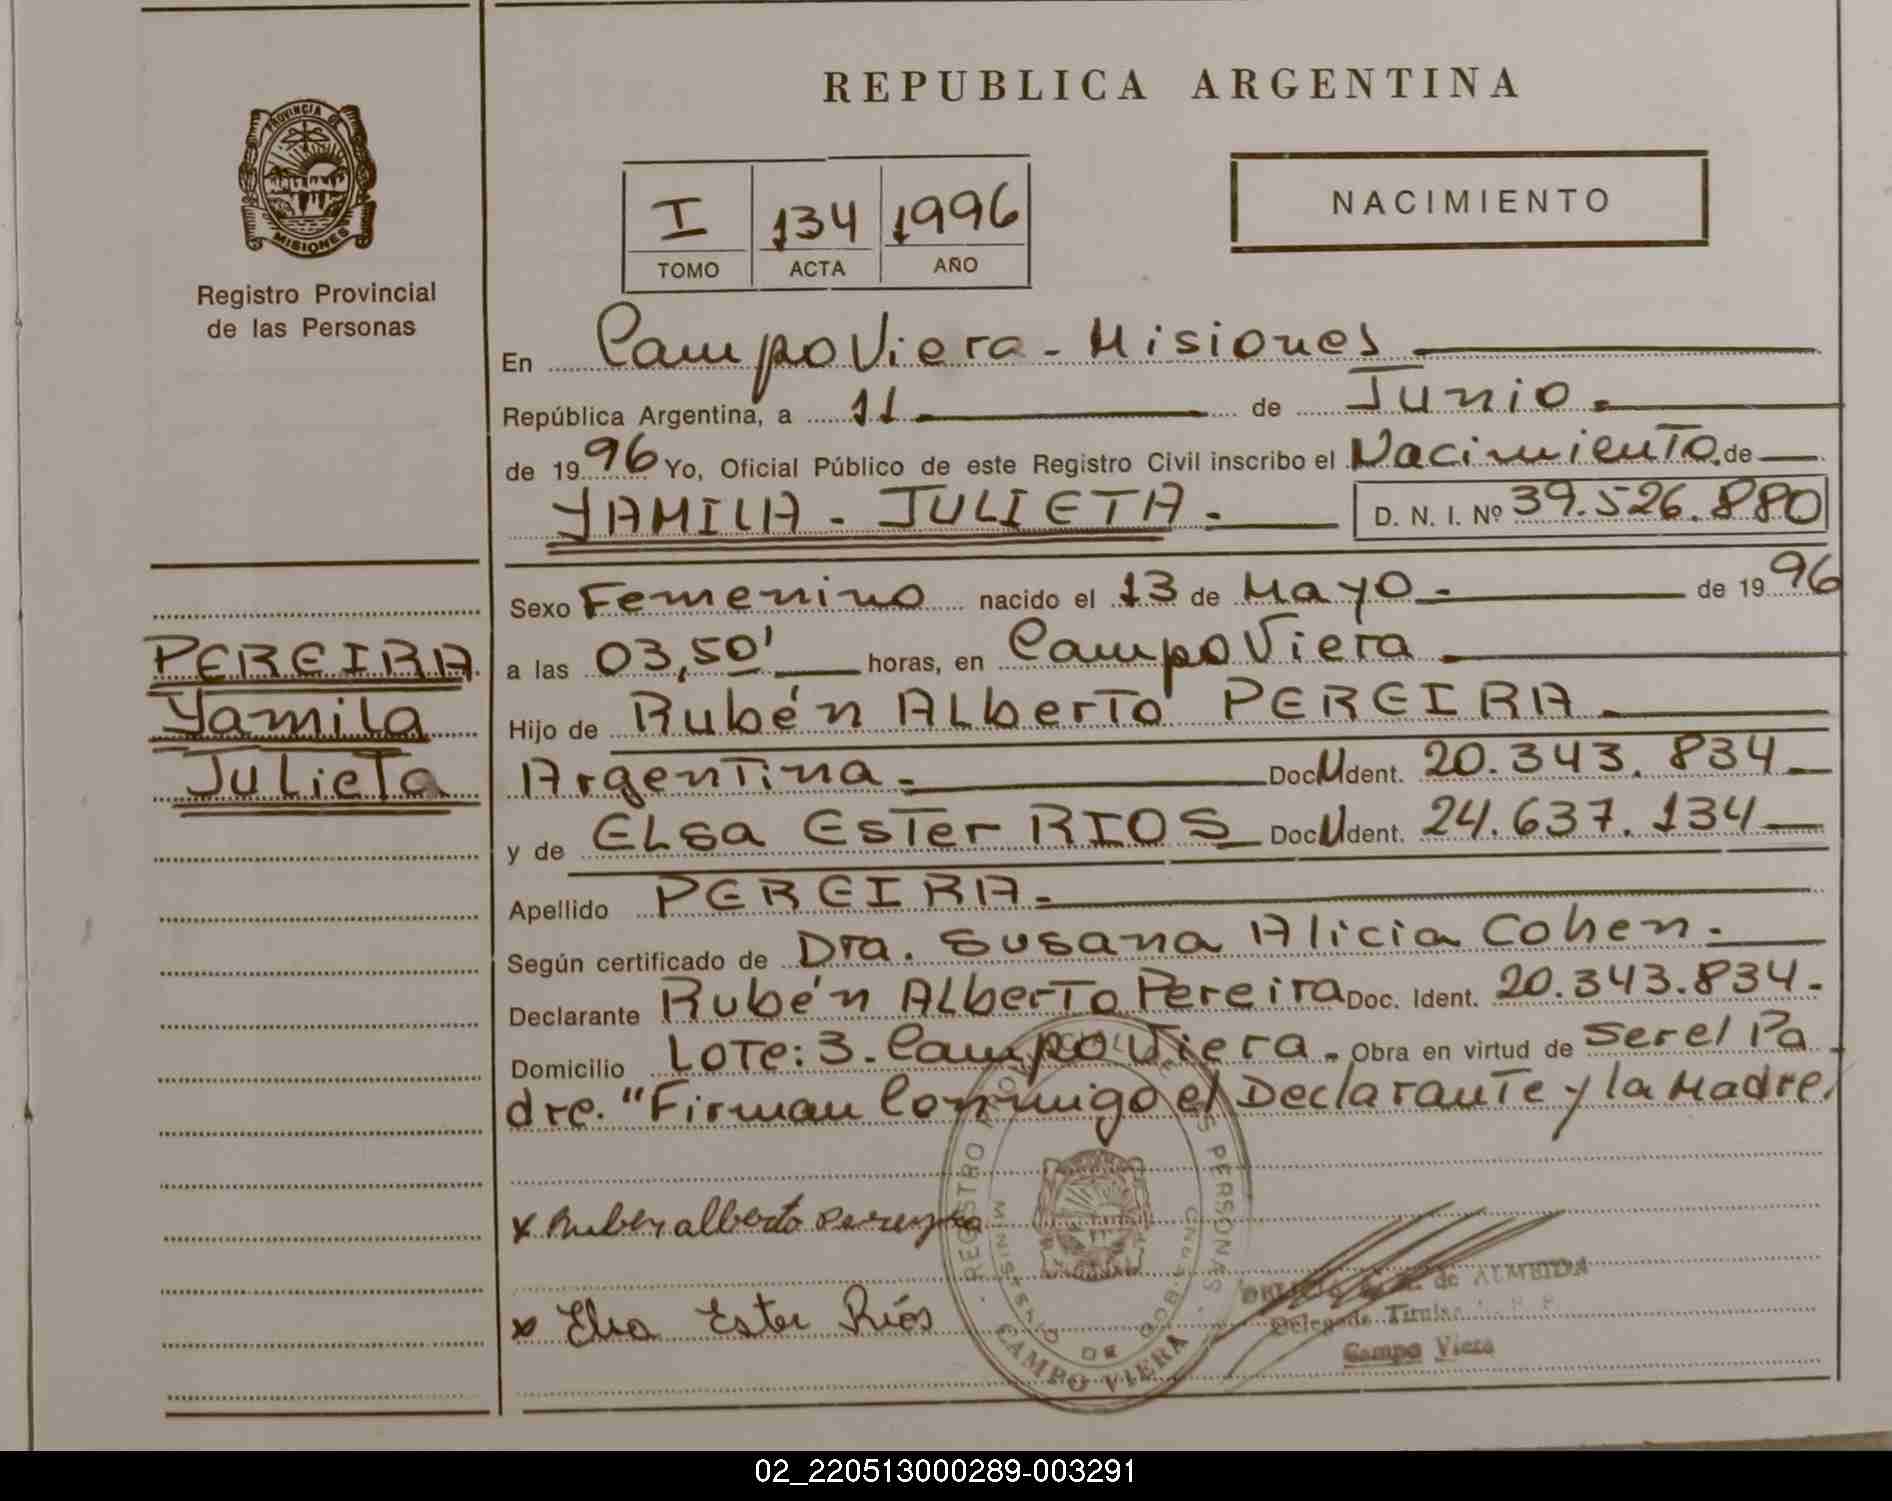 REPUBLICA ARGENTINA
PROVINCIA DE
MISIONES
Registro Provincial
de las Personas
NACIMIENTO
I 134 1996
TOMO ACTA AÑO
En Campo Viera - Misiones
República Argentina, a 11 de Junio.
de 1996 Yo, Oficial Público de este Registro Civil inscribo el Nacimiento de
YAMILA - JULIETA. D. N. I. Nº 39.526.880
Sexo Femenino nacido el 13 de Mayo de 1996
PEREIRA
Yamila
Julieta
a las 03,50' horas, en Campo Viera
Hijo de Rubén Alberto PEREIRA
Argentina. Doc U Ident. 20.343.834
y de Elsa Ester RIOS Doc U Ident. 24.637.134
Apellido PEREIRA.
Según certificado de Dra. Susana Alicia Cohen.
Declarante Rubén Alberto Pereira Doc. Ident. 20.343.834.
Domicilio Lote: 3. Campo Viera. Obra en virtud de Ser el Pa
dre. "Firman Conmigo el Declarante y la Madre,
x Ruben alberto Pereyra
x Elsa Ester Riós
REGISTRO PERSONAS
MINISTERIO DE GOB
CAMPO VIERA
de ALMEIDA
Delegada Titular
Campo Viera
02_220513000289-003291